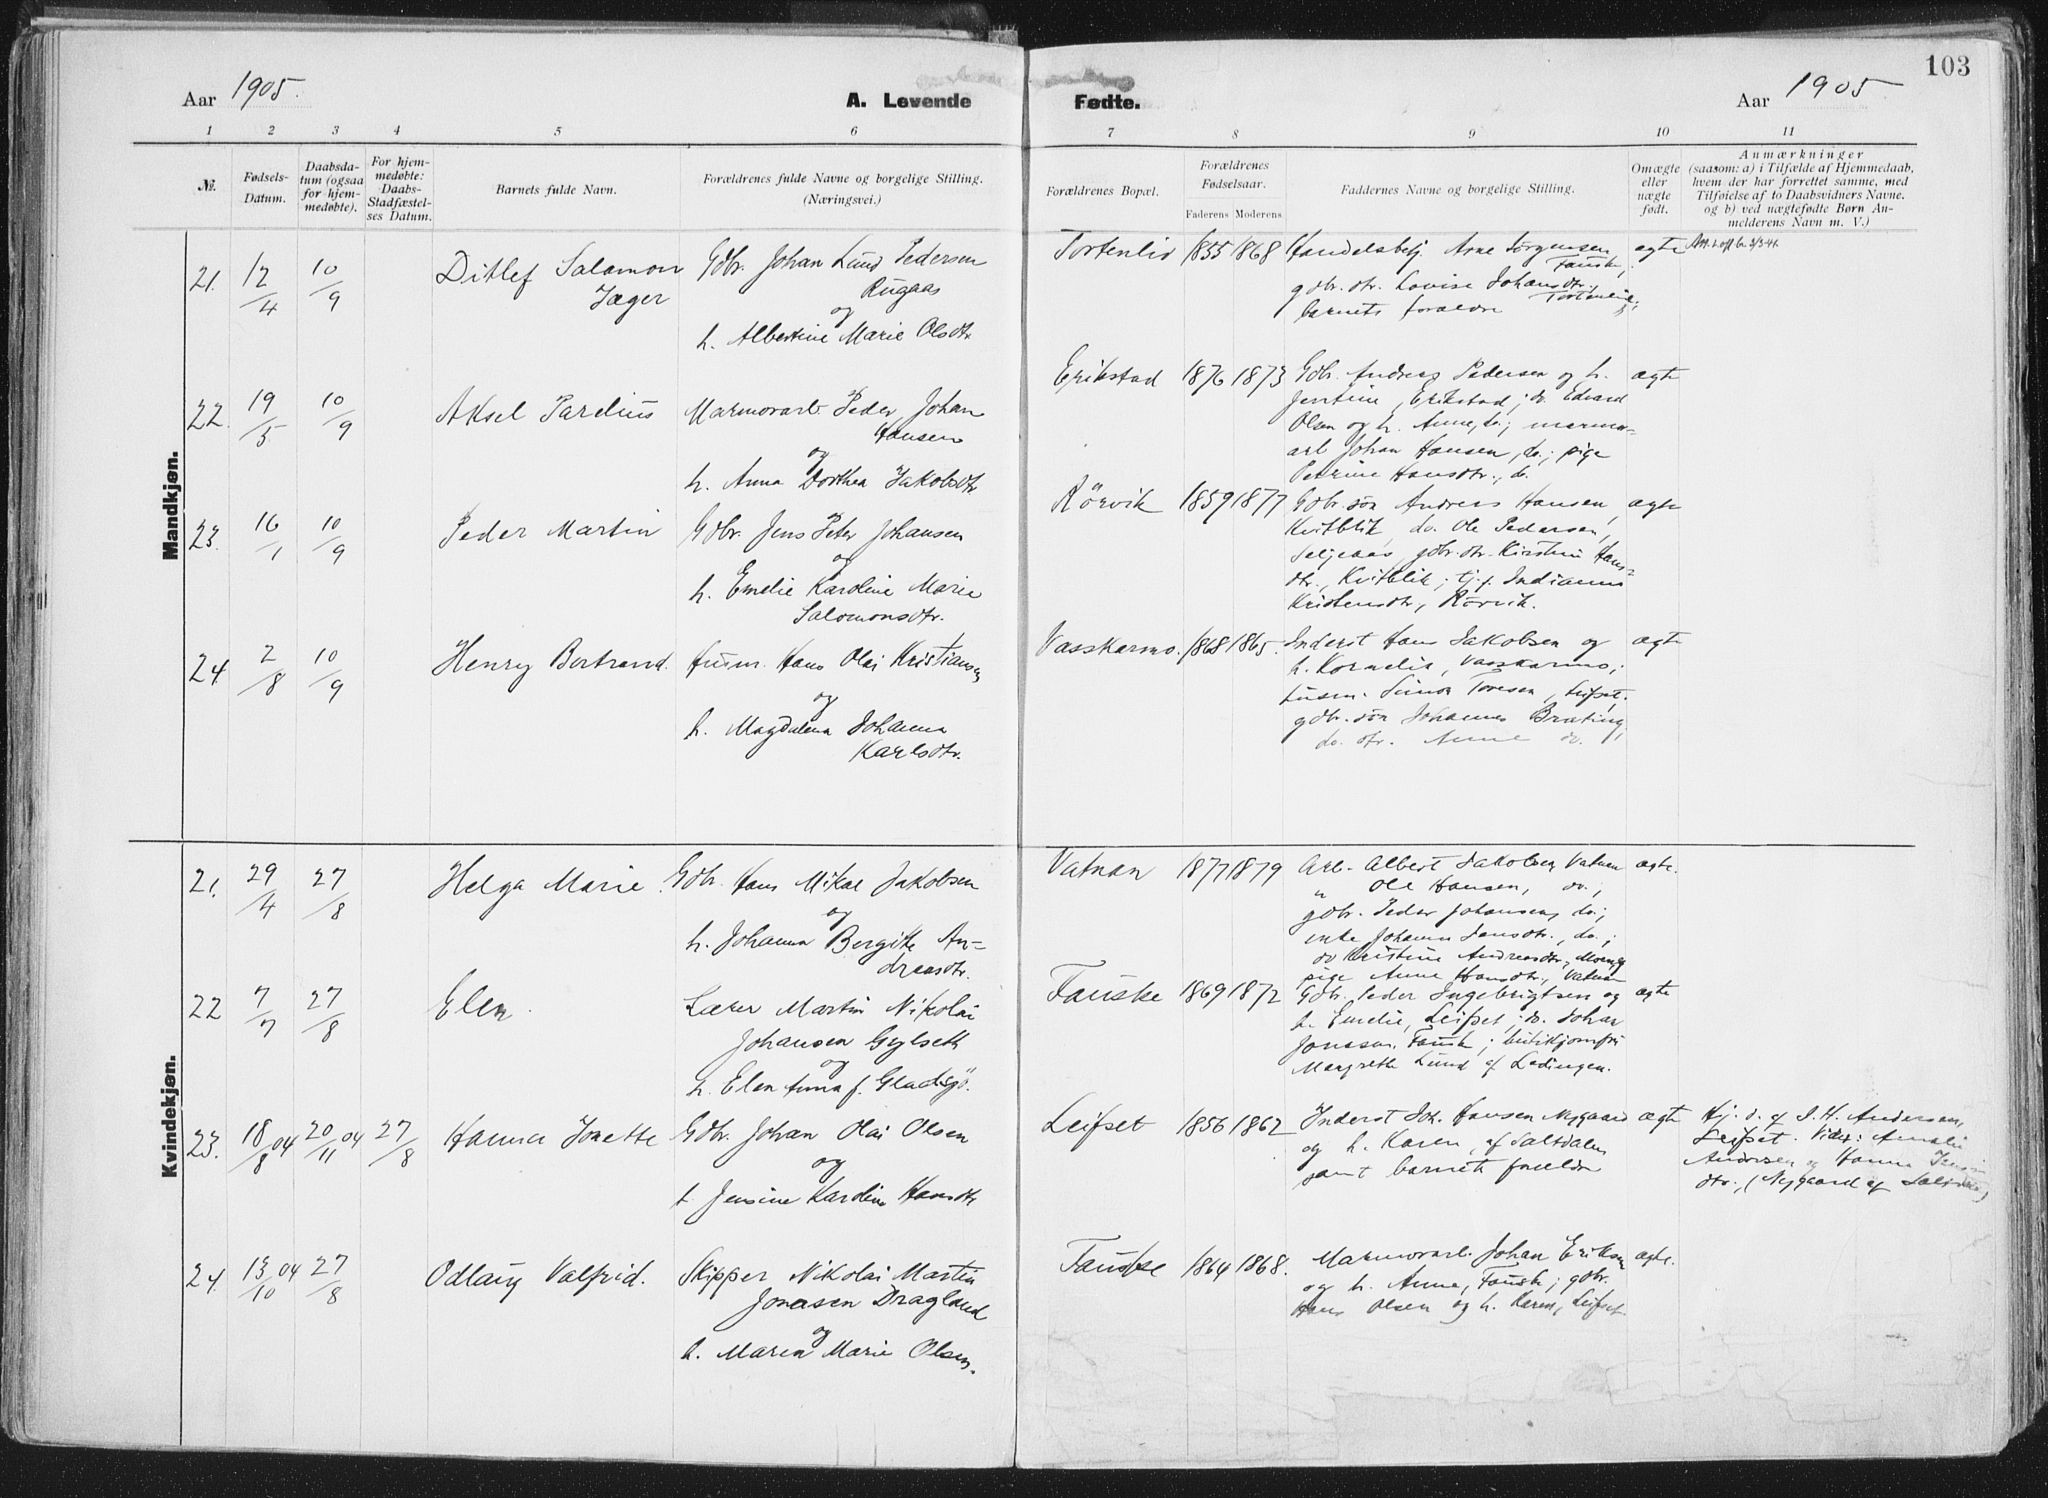 103
Aar 1905.
A. Levende
Fødte.
Aar 1905
1 2 3 4 5 6
7 8 9 10 11
№.
Fødsels-
Datum.
Daabsda-
tum (ogsaa
for hjem-
medøbte).
For hjem-
medøbte:
Daabs-
Stadfæstel-
ses Datum.
Barnets fulde Navn.
Forældrenes fulde Navne og borgelige Stilling.
(Næringsvei.)
Forældrenes Bopæl.
Forældrenes
Fødselsaar.
Faderens Moderens
Faddernes Navne og borgelige Stilling.
Omægte
eller
uægte
født.
Anmærkninger
(saasom: a) i Tilfælde af Hjemmedaab,
hvem der har forrettet samme, med
Tilføielse af to Daabsvidners Navne.
og b) ved uægtefødte Børn An-
melderens Navn m. V.)
Mandkjøn.
21. 12/4 10/9 Ditlef Salamon
Jæger
Gdbr. Johan Lund Pedersen
Rugaas
og
h. Albertine Marie Olsdtr
Tortenlid 1855 1868
Handelsbetj. Arne Jørgensen
Fauske,
gdbr. dtr. Lovise Johansdtr.,
Tortenlid,
barnets forældre
ægte
22. 19/5 10/9 Aksel Parelius
Marmorarb. Peder Johan
Hansen
og
h. Anna Dorthea Jakobsdtr
Erikstad 1876 1873
Gdbr. Andreas Pedersen og h.
Jentine, Erikstad; do. Edvard
Olsen og h. Anne, do.; marmor-
arb Johan Hansen, do.; pige
Petrine Hansdtr., do.
ægte
23. 16/1 10/9 Peder Martin
Gdbr. Jens Peter Johansen
og
h. Emelie Karoline Marie
Salomonsdtr.
Rörvik 1859 1877
Gdbr. søn Andreas Hansen,
Kvitblik, do. Ole Pedersen,
Seljeaas, gdbr. dtr. Kirstine Hans-
dtr., Kvitblik; tj. p. Indianna
Kristensdtr, Rörvik.
ægte
24. 2/8 10/9 Henry Bertrand.
Husm. Hans Olai Kristiansen
og
h. Magdalena Johanna
Karlsdtr.
Vasskarmo. 1868 1865.
Inderst Hans Jakobsen og
h. Kornelia, Vasskarmo;
husm. Simon Toresen, Leifset;
gdbr. søn Johannes Brating,
do. dtr. Anne do.
ægte
Kvindekjøn.
21. 29/4 27/8 Helga Marie.
Gdbr. Hans Mikal Jakobsen
og
h. Johanna Bergitte An-
dreasdtr.
Vatnan 1877 1879
Arb. Albert Jakobsen Vatnan
" Ole Hansen, do.,
gdbr. Peder Johansen, do.;
enke Johanna Jensdtr., do.;
do Kristine Andreasdtr.,
pige Anne Hansdtr., Vatnan
ægte.
22 7/7 27/8 Elen.
Lærer Martin Nikolai
Johansen Gylseth
og
h. Elen Anna f. Gladsjö.
Fauske 1869 1872
Gdbr. Peder Ingebrigtsen og
h. Emelie, Leifset; do. Johan
Jonassen, Fauske; butikjomfru
Margrethe Lund af Lødingen.
ægte
23. 18/8 04 20/11 04 27/8 Hanna Jonette
Gdbr. Johan Olai Olsen
og
h. Jensine Karoline Hansdtr
Leifset 1856 1862
Inderst Joh. Hansen Nygaard
og h. Karen, af Saltdalen
samt barnets forældre
ægte
Hj. d. af J. H. Andersen,
Leifset. Vidn: Amalie
Andersen og Hanna
dtr., (Nygaard af Saltdalen)
24. 13/10 04 27/8 Odlaug Valfrid.
Skipper Nikolai Martin
Jonassen Dragland
og
h. Maren Marie Olsen.
Fauske 1864 1868.
Marmorarb. Johan Eriksen
og h. Anna, Fauske; gdbr.
Hans Olsen og h. Karen, Leifset.
ægte.